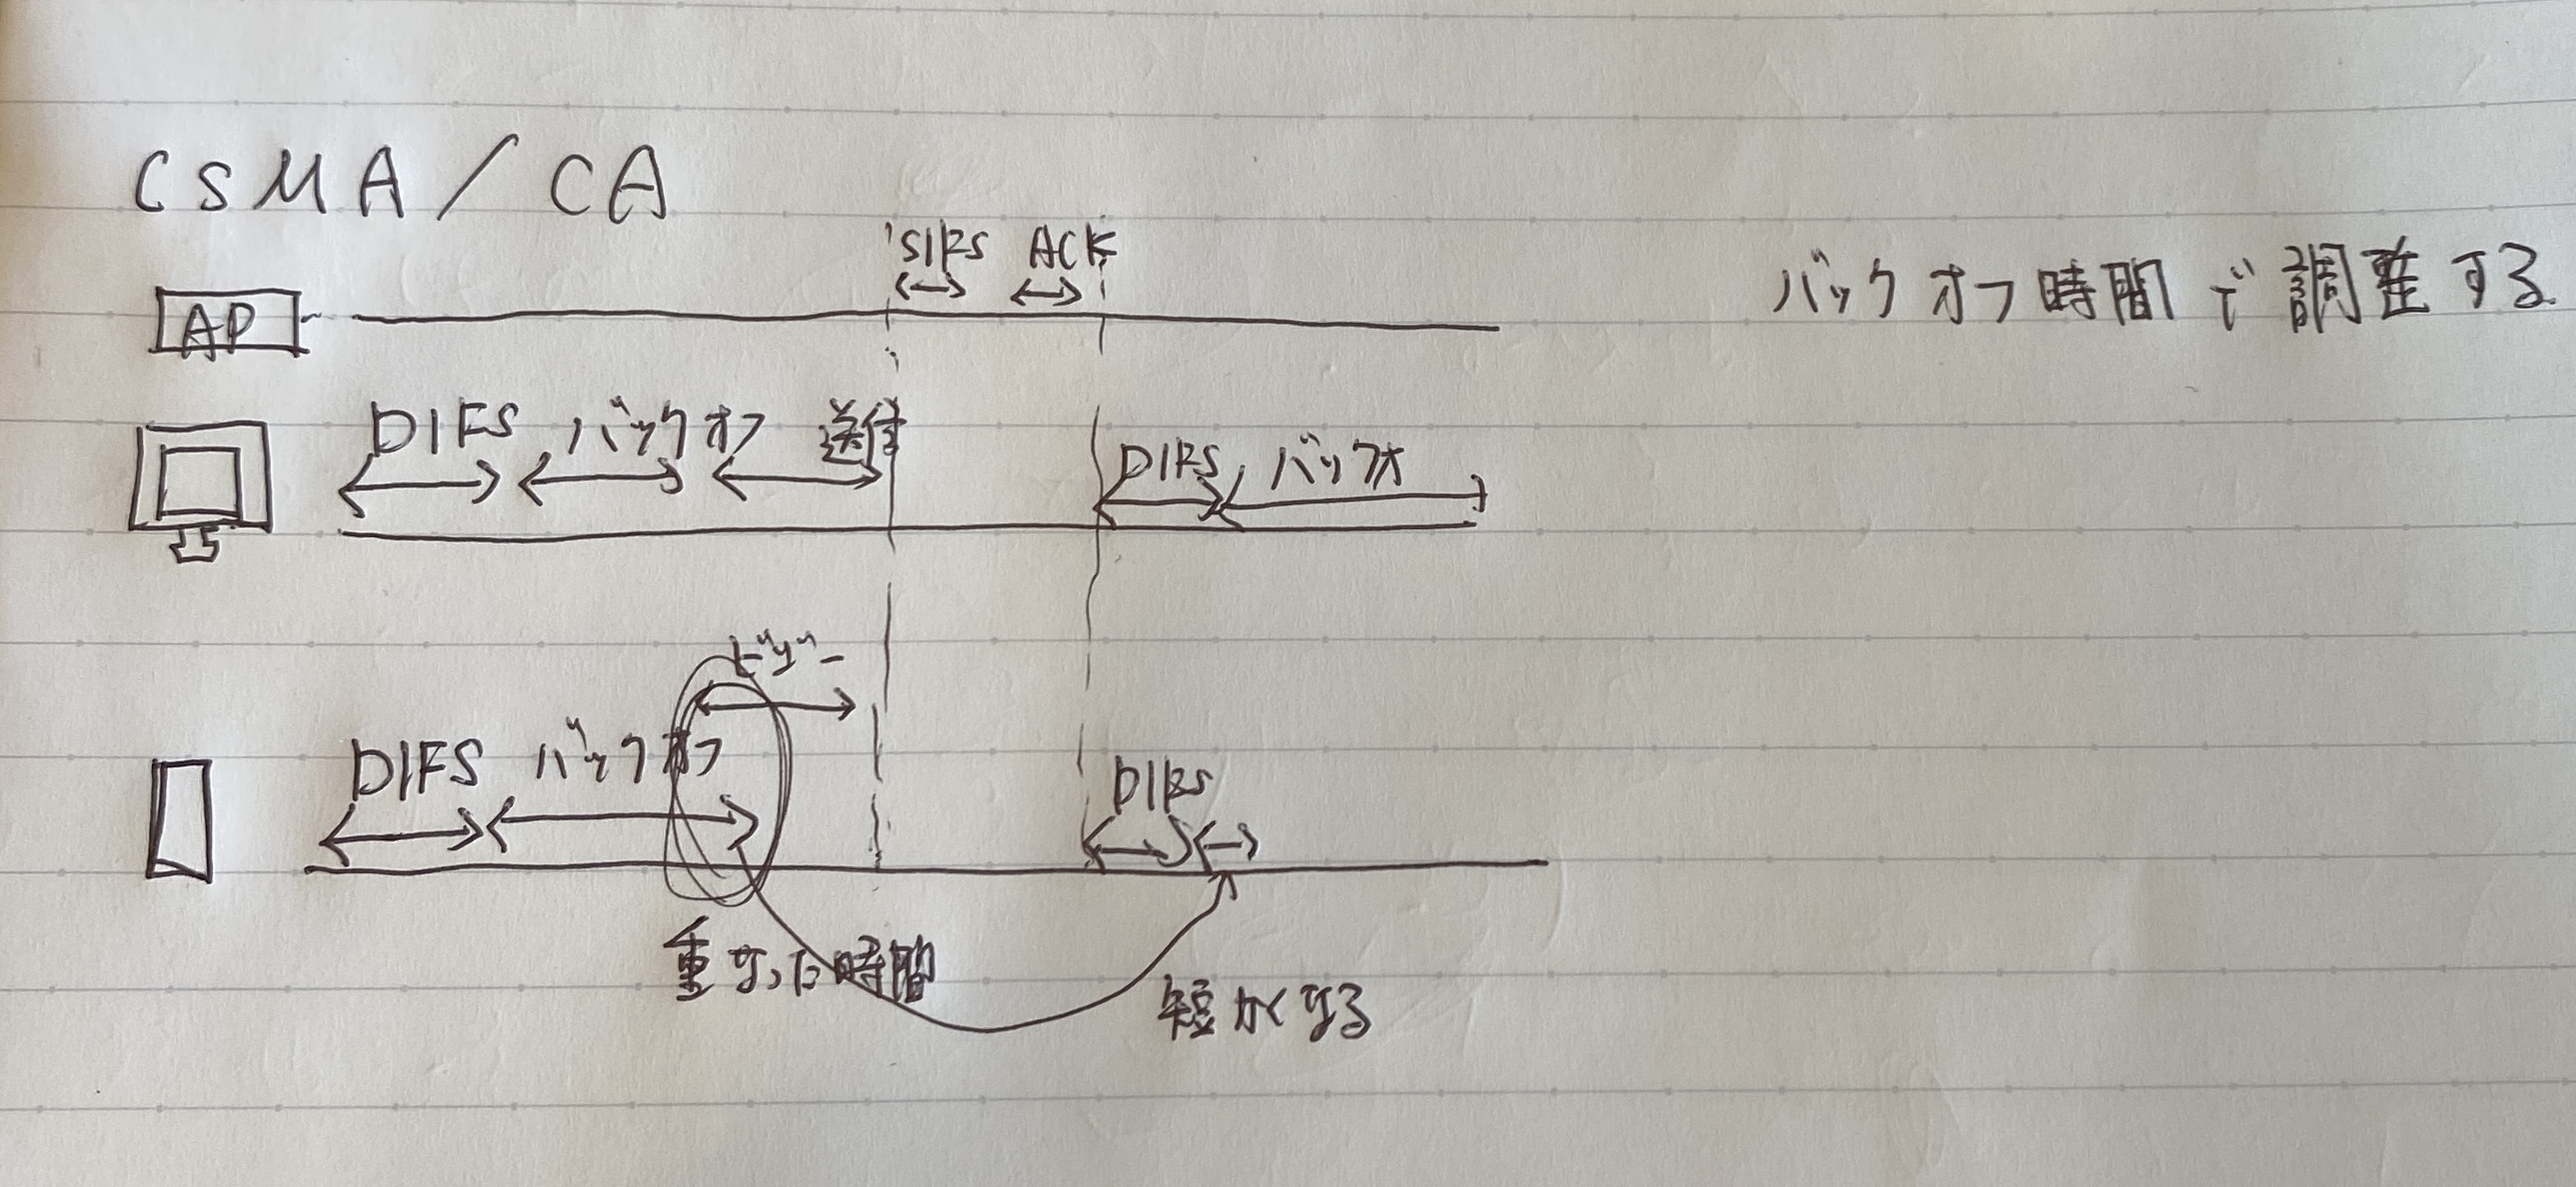 CSMA/CA
SIFS ACK
バックオフ時間で調整する
AP
DIFS バックオフ 送付
DIFS バックオ
ビジー
DIFS バックオフ
DIFS
重なった時間
短かくなる